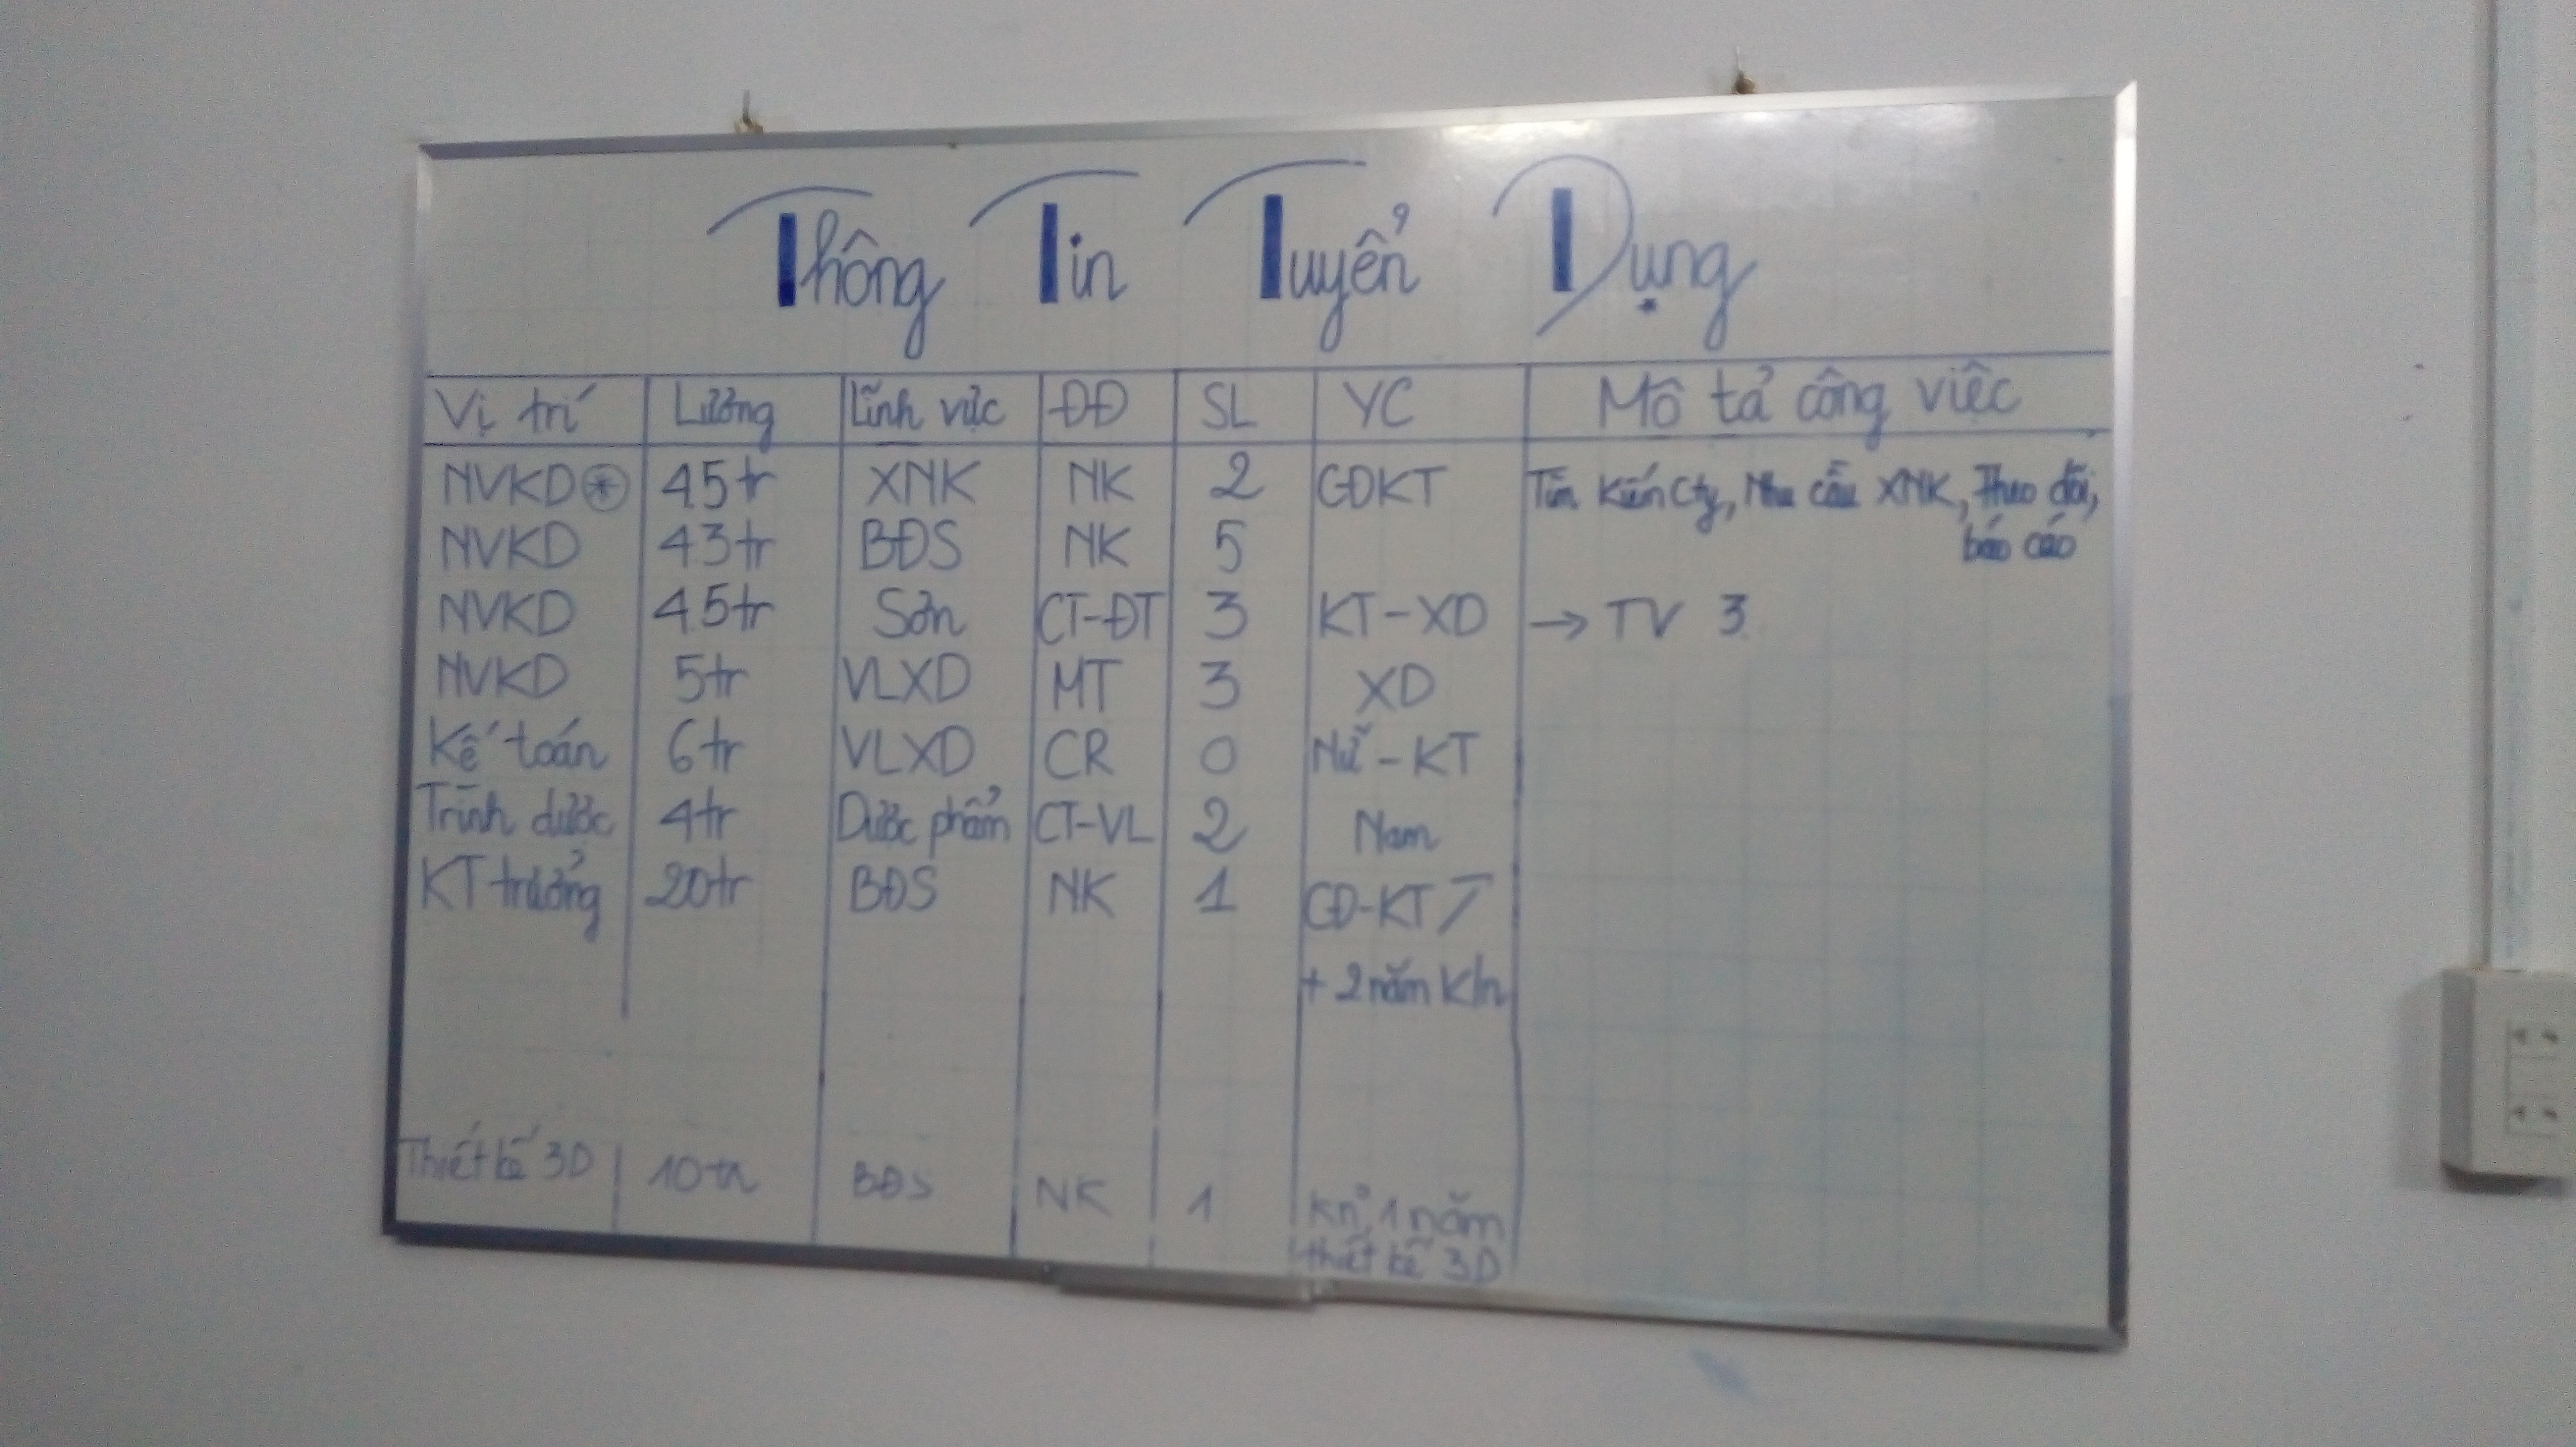 Thông Tin Tuyển Dụng
Vị trí Lương Lĩnh vực ĐĐ SL YC Mô tả công việc
NVKD * 4.5tr XNK NK 2 CĐKT Tìm Kiếm Cty, Nhu cầu XNK, Theo dõi,
báo cáo
NVKD 4.3tr BĐS NK 5
NVKD 4.5tr Sơn CT-ĐT 3 KT-XD → TV 3
NVKD 5tr VLXD MT 3 XD
Kế toán 6tr VLXD CR 0 Nữ-KT
Trình dược 4tr Dược phẩm CT-VL 2 Nam
KT trưởng 20tr BĐS NK 1 CĐ-KT
+ 2 năm K/n
Thiết kế 3D 10tr BĐS NK 1 Kn 1 năm
thiết kế 3D